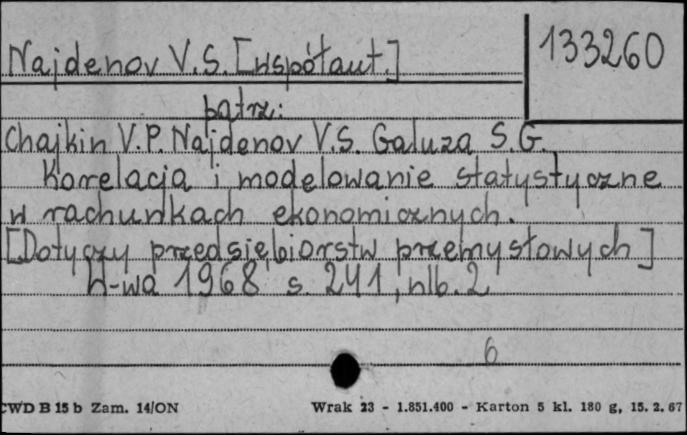 Najdenov V.S. [współaut.]
133260
patrz:
Chajkin V.P. Najdenov V.S. Galuza S.G.
Korelacja i modelowanie statystyczne
w rachunkach ekonomicznych.
[Dotyczy przedsiębiorstw przemysłowych]
W-wa 1968 s. 241, nlb. 2
6
CWD B 15 b Zam. 14/ON
Wrak 23 - 1.851.400 - Karton 5 kl. 180 g, 15. 2. 67